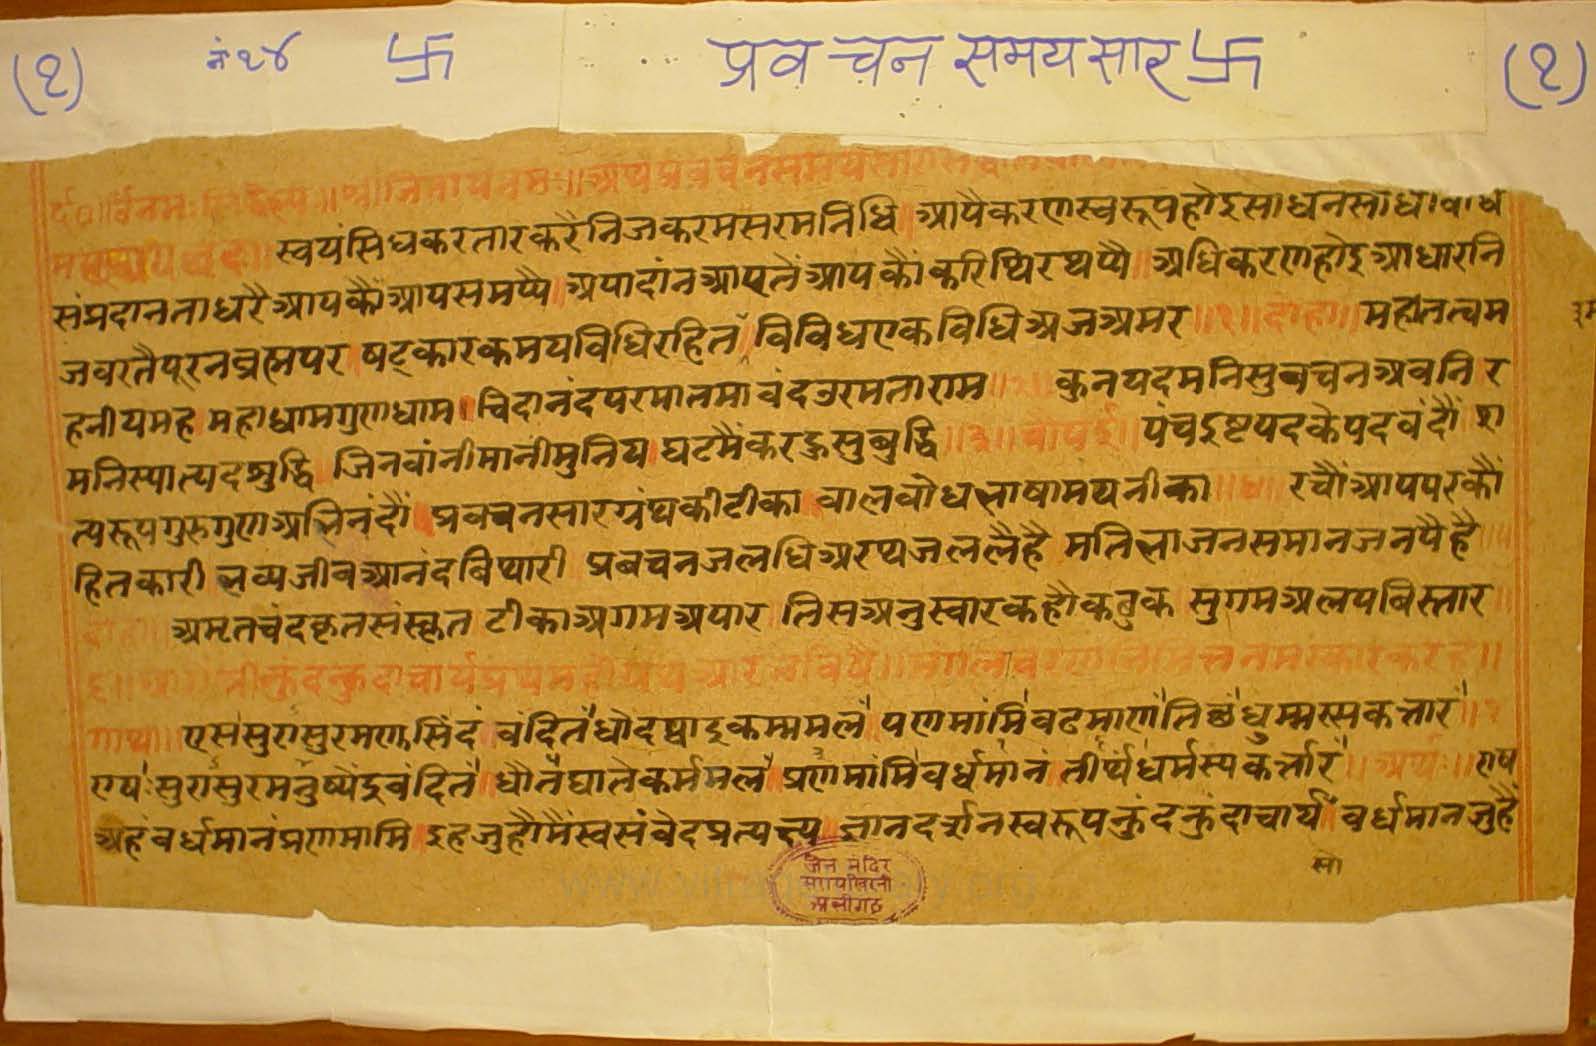 (१) नं १४ 卐 प्रवचन समयसार 卐 (१)
॥ अथ प्रवचनसमयसार
स्वयंसिधकरतार करैनिजकरमसरमनिधि आपैकरणस्वरूपहोइसाधनसाधा
संप्रदानताधरै आपकौंआपसमप्यै अपादांनआपतैंआपकौंकरिथिरथप्यै अधिकरणहोइआधारनि
जवरतैपूरनब्रह्मपर षट्कारकमयविधिरहित विविधएकविधिअजअमर ॥१॥ दोहा॥ महातत्वम
हनीयमह महाधामगुणधाम चिदानंदपरमातमा वंदउरमताराम ॥२॥ कुनयदमनिसुवचनअवनि र
मनिस्यात्पदशुद्धि जिनवांनीमानीमुनिय घटमैंकरहुसुबुद्धि ॥३॥ चौपई॥ पंचइष्टपदकेपदवंदौं स
त्यरूपगुरुगुणअभिनंदौं प्रवचनसारग्रंथकीटीका बालबोधभाषामयनीका रचौंआपपरकौं
हितकारी भव्यजीवआनंदविथारी प्रबचनजलधिअरथजललैहै मतिभाजनसमानजनपैहै
दोहा॥ अमृतचंदकृतसंस्कृत टीकाअगमअपार तिसअनुस्वारकहौंकछुक सुगमअलपबिस्तार
श्रीकुंदकुंदाचार्यप्रथमही ग्रंथआरंभविषै॥ मंगलाचरणनिमित्तनमस्कारकरहै॥
गाथा॥ एससुरासुरमणुसिंदं वंदितंधोदघाइकम्ममलं पणमामिवढमाणंतिछंधम्मस्सकत्तारं ॥१
एषःसुरासुरमनुष्येंद्रवंदितं धौतघातिकर्ममलं प्रणमामिवर्धमानं तीर्थंधर्मस्यकर्त्तारं॥ अर्थः॥ एष
अहंवर्धमानंप्रणमामि इहजुहौंमैंस्वसंवेदप्रत्यक्ष ज्ञानदर्शनस्वरूपकुंदकुंदाचार्य वर्धमानजुहैं
सो
जैन मंदिर
अलीगढ